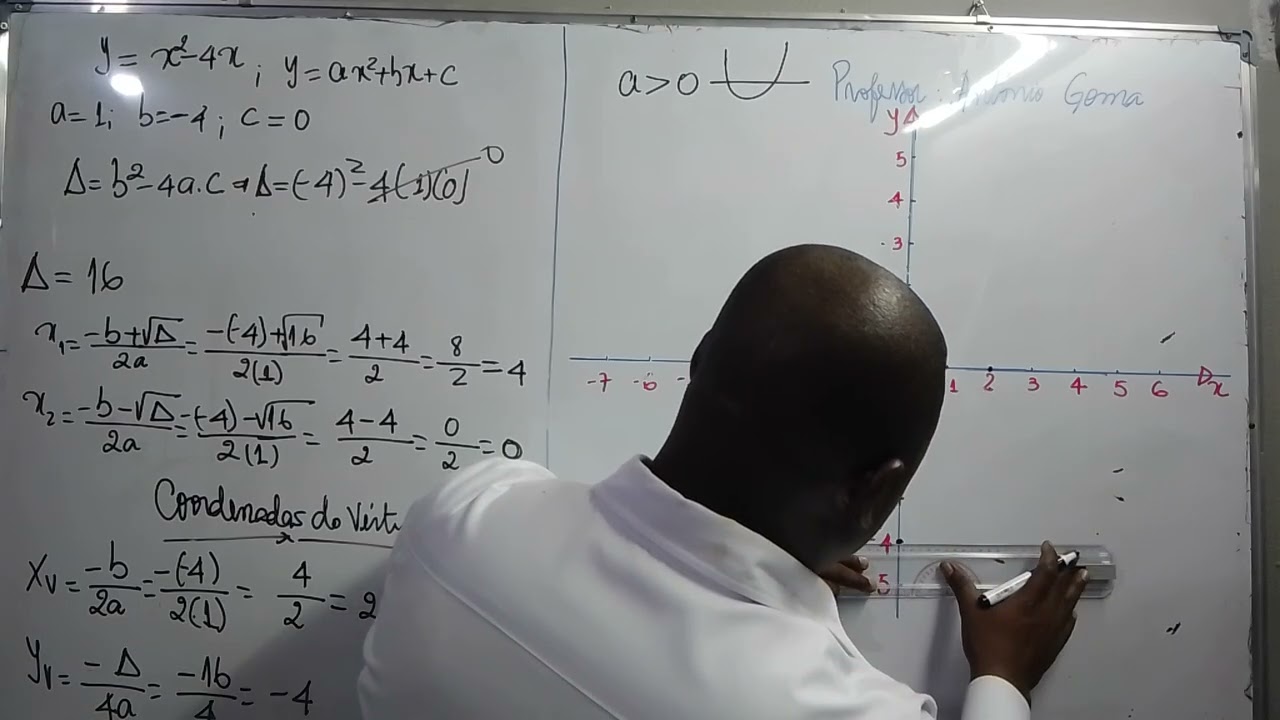 y = x²-4x ; y = ax²+bx+c
a = 1; b=-4 ; c = 0
Δ= b²-4a.c → Δ=(-4)²-4(1)(0) 0
Δ = 16
x₁= -b+√Δ/2a = -(-4)+√16/2(1) = 4+4/2 = 8/2 = 4
x₂= -b-√Δ/2a = -(-4)-√16/2(1) = 4-4/2 = 0/2 = 0
Coordenadas do Vérti
Xv= -b/2a = -(-4)/2(1) = 4/2 = 2
Yv= -Δ/4a = -16/4 = -4
a>0
Professor: António Goma
y
5
4
3
-7 -6 1 2 3 4 5 6 x
4
5